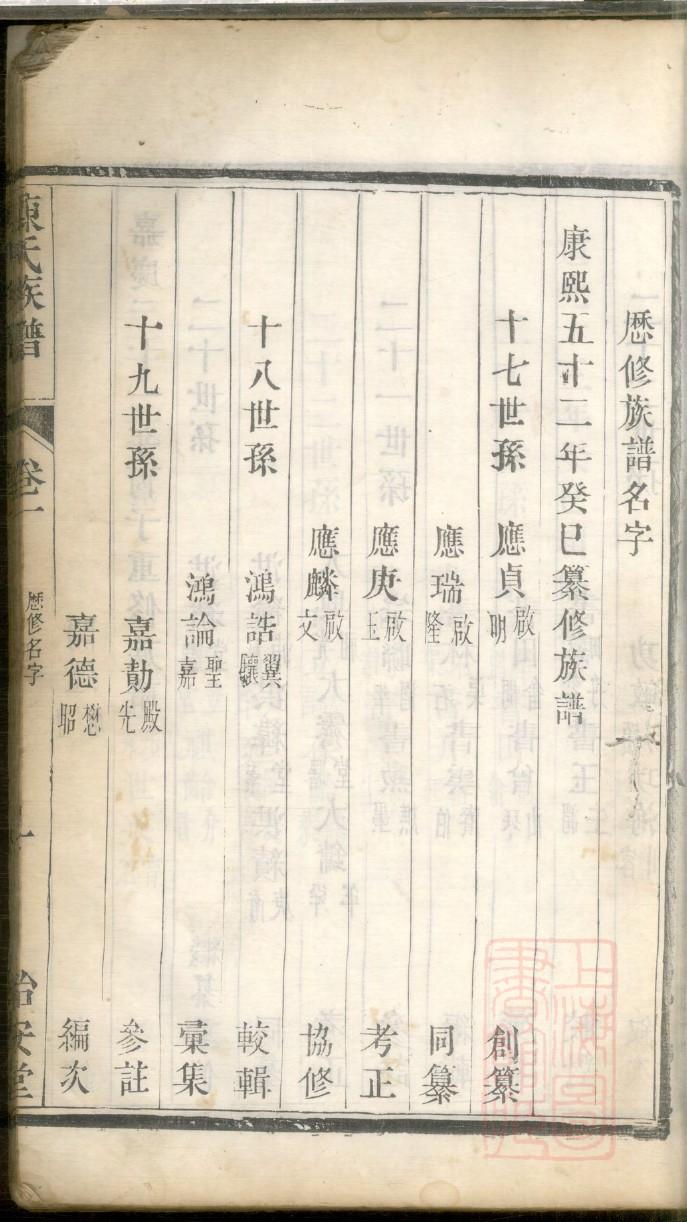 歷修族譜名字
康熙五十二年癸巳纂修族譜
十七世孫 應貞啟明 創纂
應瑞啟隆 同纂
應庚啟玉 考正
應麟啟文 協修
十八世孫 鴻誥翼驤 較輯
鴻論聖嘉 彙集
十九世孫 嘉勣殿光 參註
嘉德懋昭 編次
陳氏族譜 卷一 歷修名字 一 治安堂
上海圖書館藏